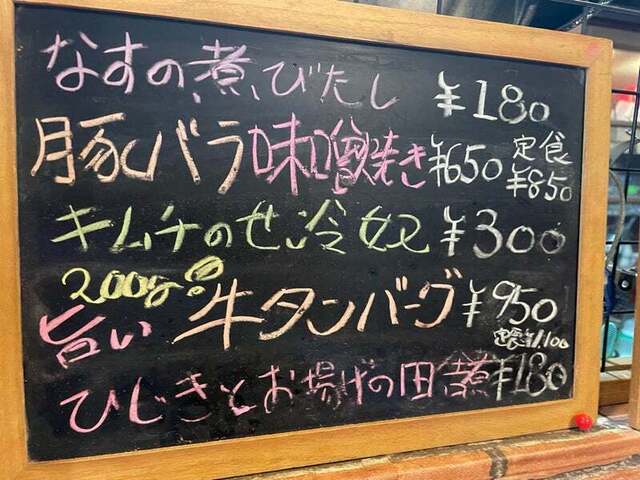 なすの煮びたし ¥180
豚バラ味噌焼き ¥650 定食 ¥850
キムチのせ冷奴 ¥300
200g!?
旨い 牛タンバーグ ¥950 定食¥1,100
ひじきとお揚げの田舎煮 ¥180